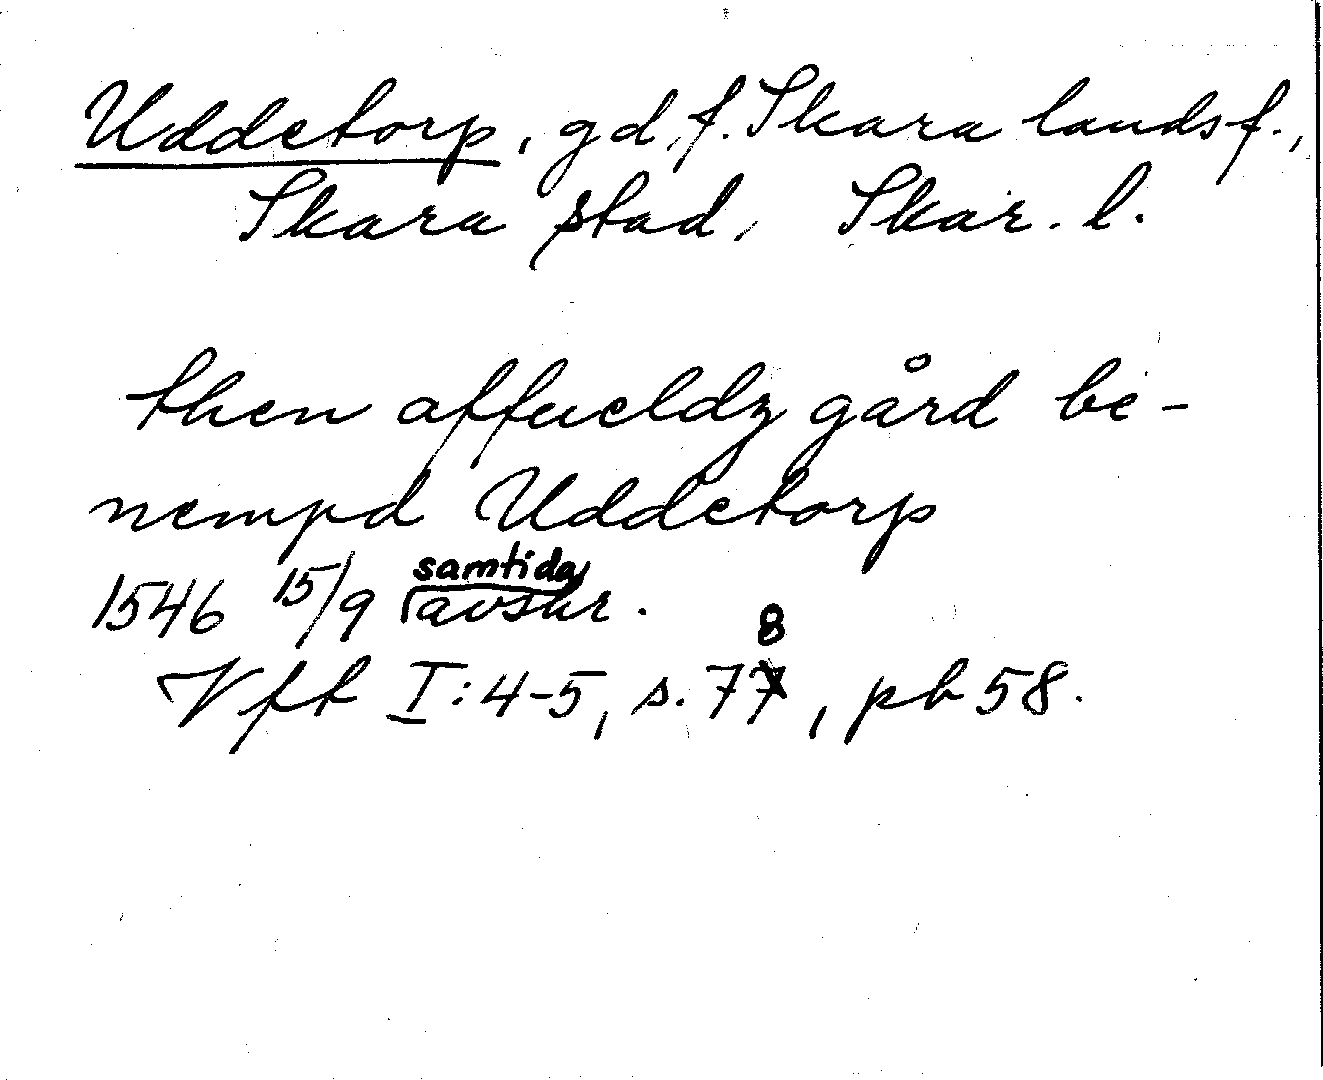 Uddetorp, gd, f. Skara landsf.,
Skara stad, Skar. l.
then affueldz gård be-
nempd Uddetorp
1546 15/9 samtida avskr.
Vft I:4-5, s. 78, pb 58.